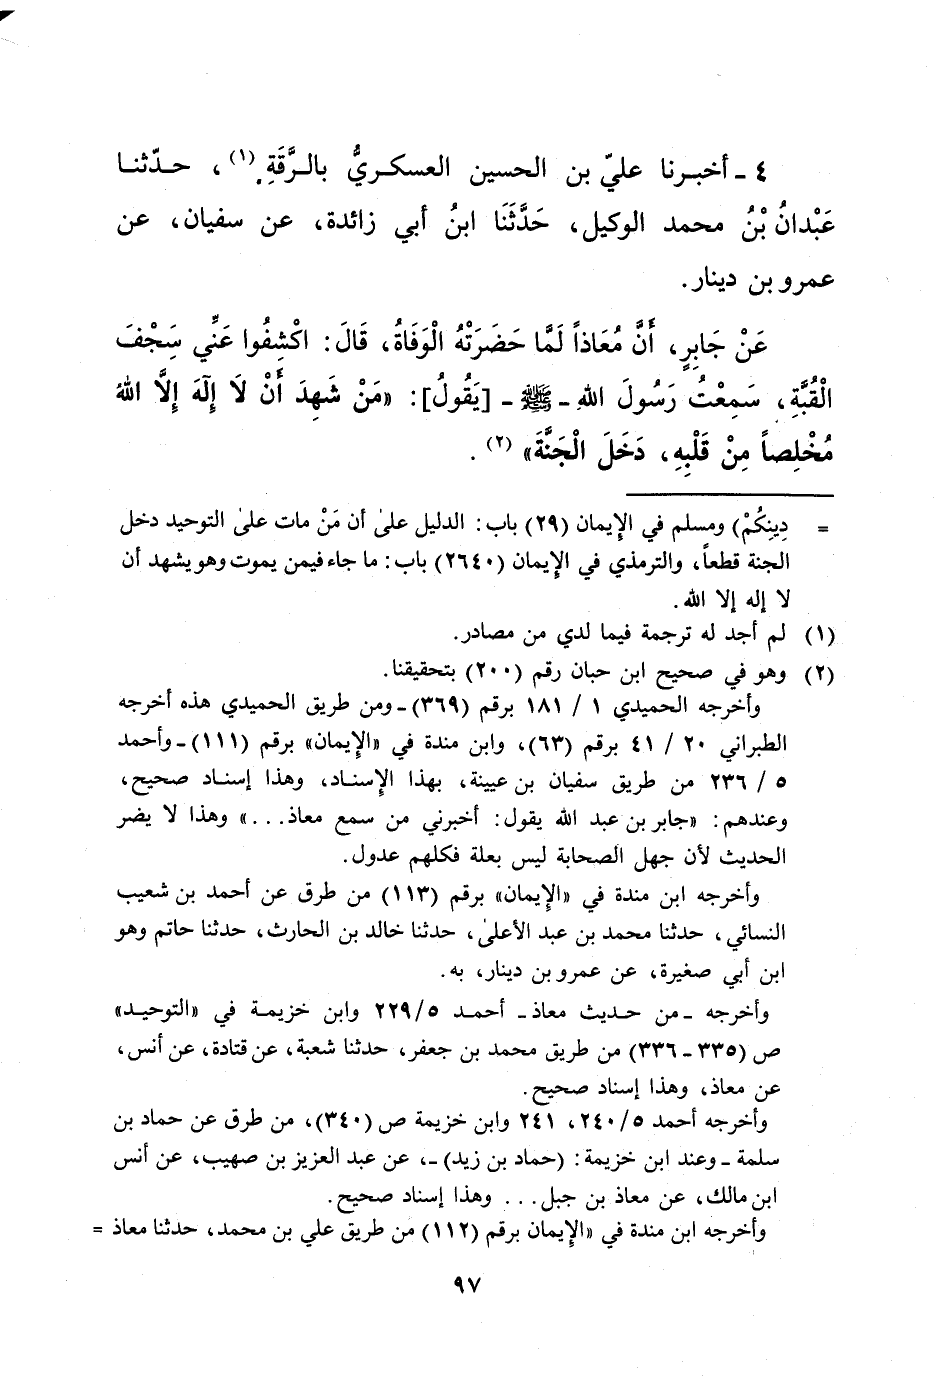 ٤ ـ أخبرنا عليّ بن الحسين العسكريُّ بالرَّقَةِ (١)، حدّثنا
عَبْدانُ بْنُ محمد الوكيل، حَدَّثَنَا ابنُ أبي زائدة، عن سفيان، عن
عمرو بن دينار.
عَنْ جَابِرٍ، أَنَّ مُعَاذاً لَمَّا حَضَرَتْهُ الْوَفَاةُ، قَالَ: اكْشِفُوا عَنِّي سَجْفَ
الْقُبَّةِ، سَمِعْتُ رَسُولَ اللهِ ـ ﷺ ـ [يَقُولُ]: «مَنْ شَهِدَ أَنْ لَا إِلَهَ إِلاَّ اللهُ
مُخْلِصاً مِنْ قَلْبِهِ، دَخَلَ الْجَنَّةَ» (٢).
= دِينِكُمْ) ومسلم في الإيمان (٢٩) باب: الدليل على أن مَنْ مات على التوحيد دخل
الجنة قطعاً، والترمذي في الإيمان (٢٦٤٠) باب: ما جاء فيمن يموت وهو يشهد أن
لا إله إلا الله.
(١) لم أجد له ترجمة فيما لدي من مصادر.
(٢) وهو في صحيح ابن حبان رقم (٢٠٠) بتحقيقنا.
وأخرجه الحميدي ١ / ١٨١ برقم (٣٦٩) ـ ومن طريق الحميدي هذه أخرجه
الطبراني ٢٠ / ٤١ برقم (٦٣)، وابن مندة في «الإيمان» برقم (١١١) ـ وأحمد
٥ / ٢٣٦ من طريق سفيان بن عيينة، بهذا الإسناد، وهذا إسناد صحيح،
وعندهم: «جابر بن عبد الله يقول: أخبرني من سمع معاذ...» وهذا لا يضر
الحديث لأن جهل الصحابة ليس بعلة فكلهم عدول.
وأخرجه ابن مندة في «الإيمان» برقم (١١٣) من طرق عن أحمد بن شعيب
النسائي، حدثنا محمد بن عبد الأعلى، حدثنا خالد بن الحارث، حدثنا حاتم وهو
ابن أبي صغيرة، عن عمرو بن دينار، به.
وأخرجه ـ من حديث معاذ ـ أحمد ٢٢٩/٥ وابن خزيمة في «التوحيد»
ص (٣٣٥ ـ ٣٣٦) من طريق محمد بن جعفر، حدثنا شعبة، عن قتادة، عن أنس،
عن معاذ، وهذا إسناد صحيح.
وأخرجه أحمد ٢٤٠/٥، ٢٤١ وابن خزيمة ص (٣٤٠)، من طرق عن حماد بن
سلمة ـ وعند ابن خزيمة: (حماد بن زيد) ـ، عن عبد العزيز بن صهيب، عن أنس
ابن مالك، عن معاذ بن جبل... وهذا إسناد صحيح.
وأخرجه ابن مندة في «الإيمان برقم (١١٢) من طريق علي بن محمد، حدثنا معاذ =
٩٧